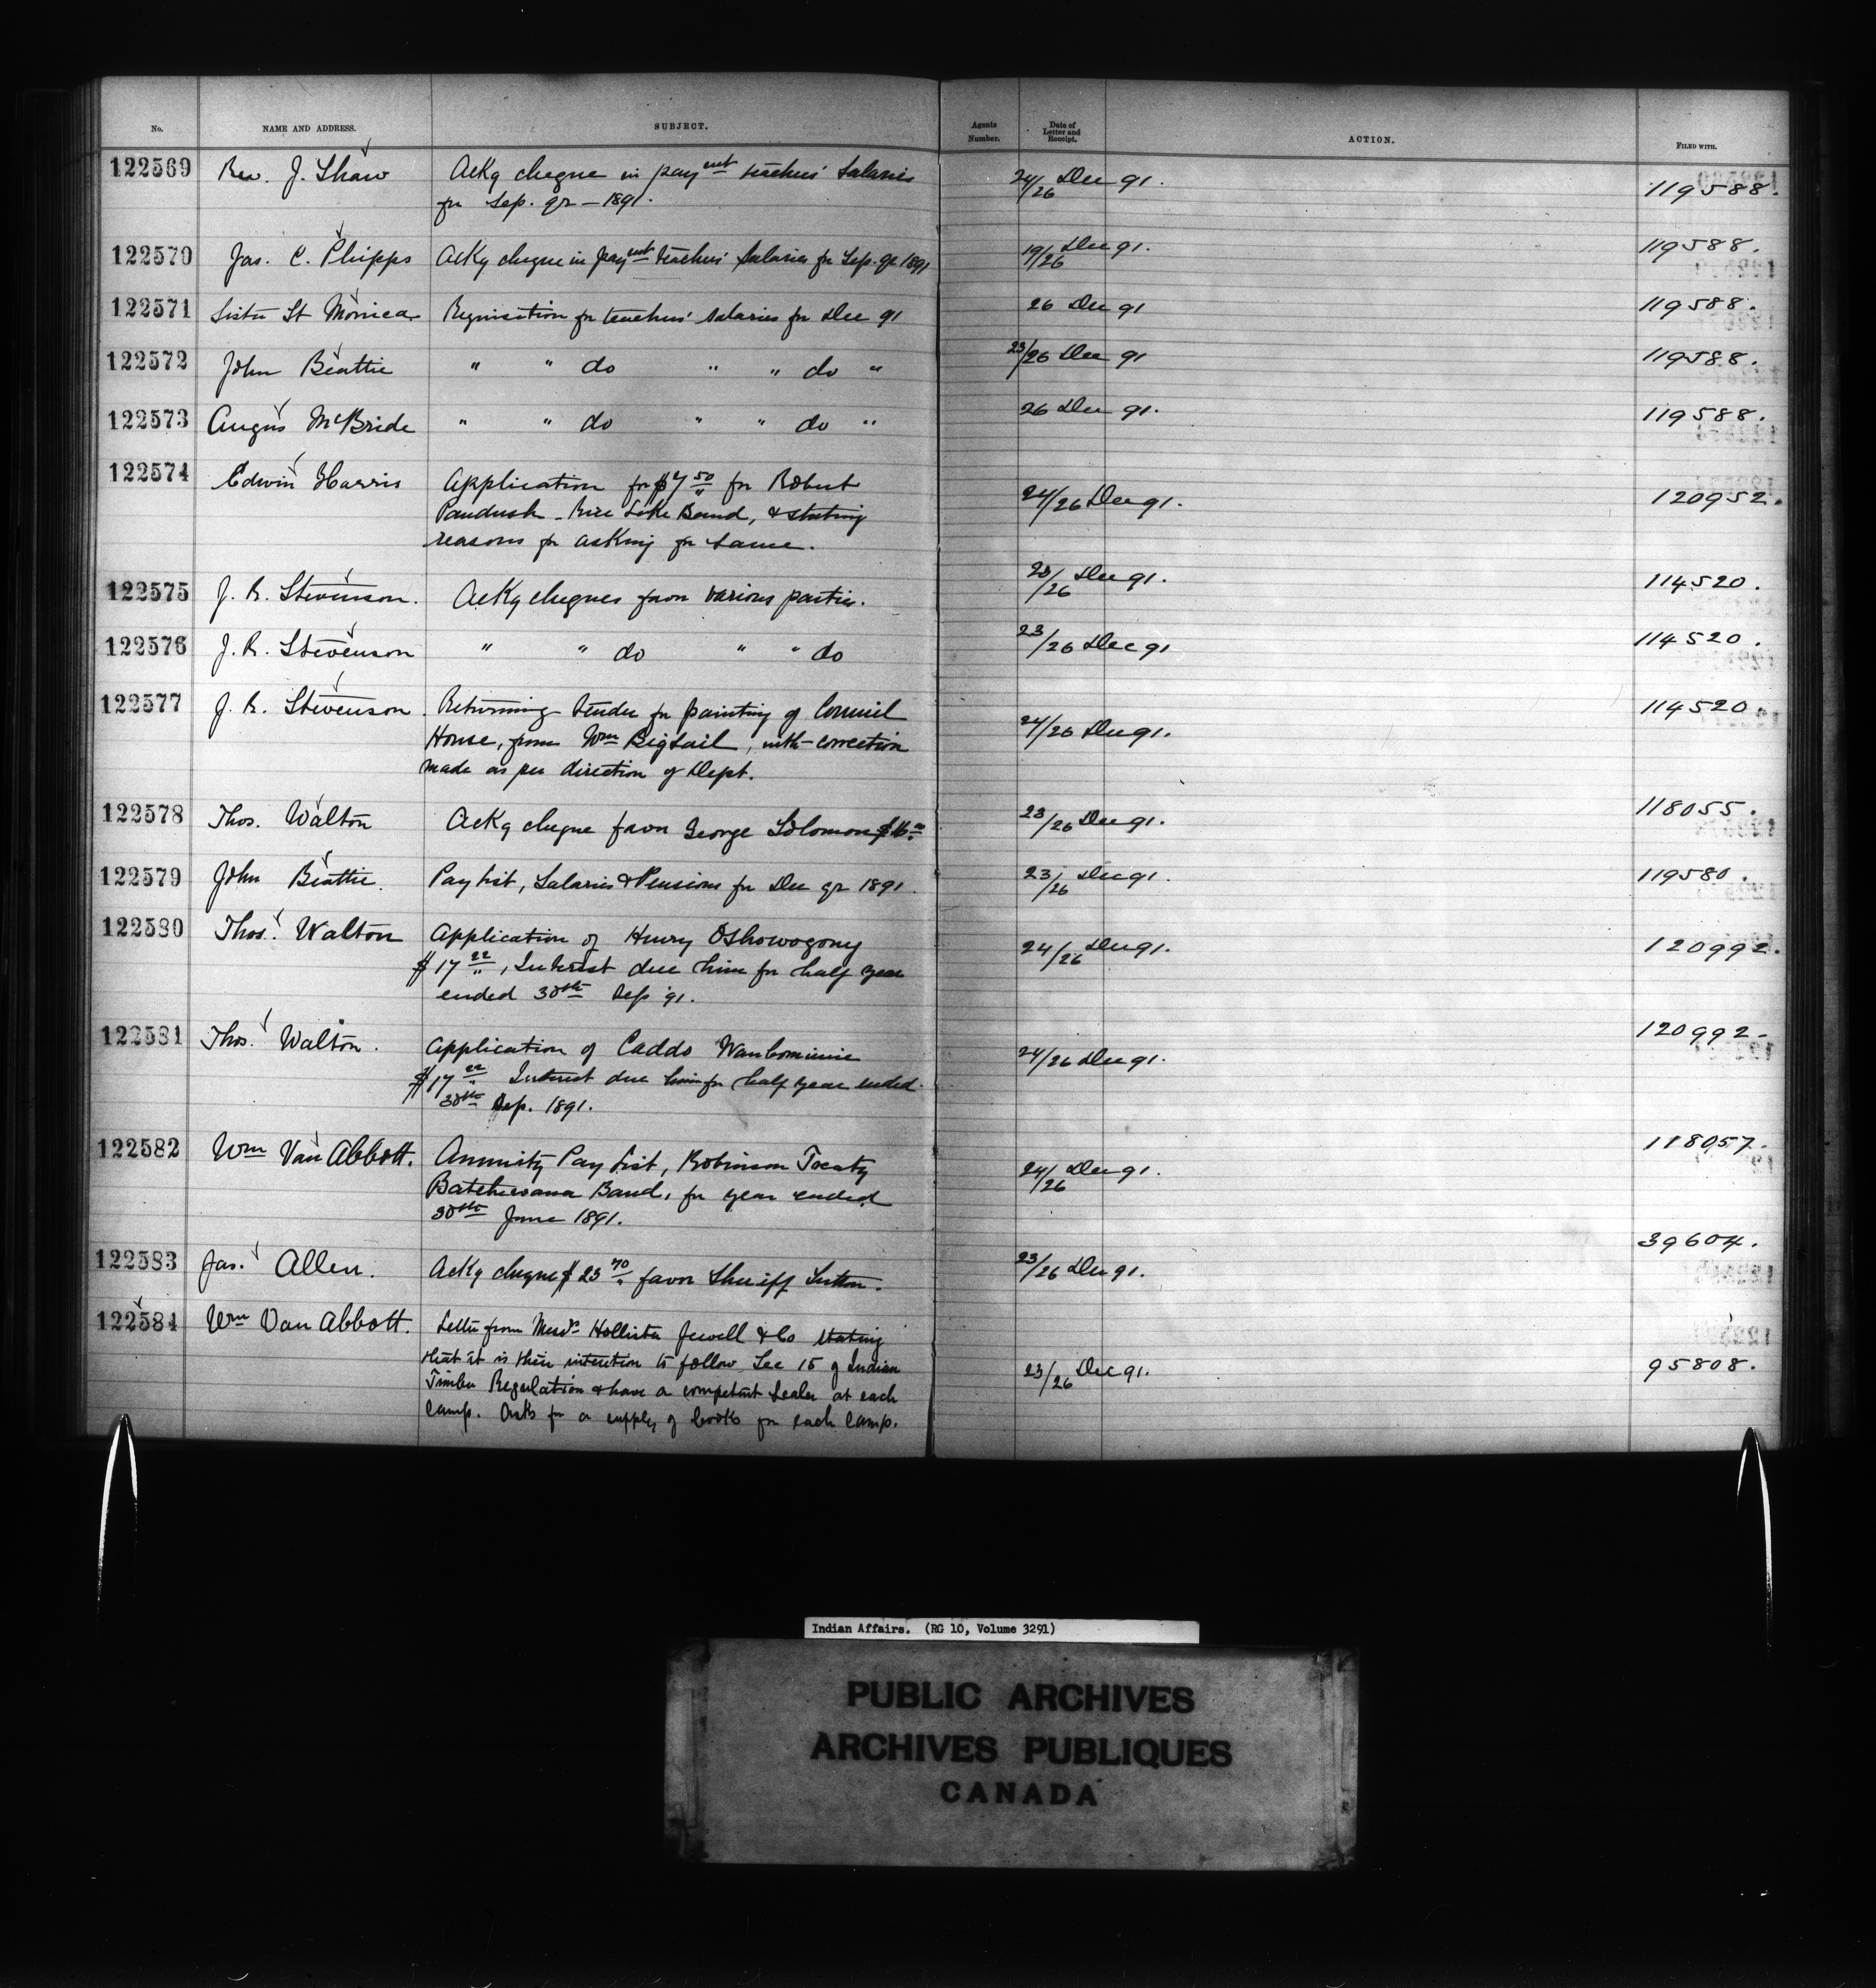 No. NAME AND ADDRESS. SUBJECT. Agents Number. Date of Letter and Receipt. ACTION. FILED WITH.
122569 Rev. J. Shaw Ackg cheque in payent teachers' Salaries 24/26 Dec 91. 119588.
for Sep. qr – 1891.
122570 Jas. C. Phipps Ackg cheque in payent teachers' Salaries for Sep. qr 1891 19/26 Dec 91. 119588.
122571 Sister St Monica Requisition for teachers' salaries for Dec 91 26 Dec 91 119588.
122572 John Beattie " " do " " do " 23/26 Dec 91 119588.
122573 Angus McBride " " do " " do " 26 Dec 91. 119588.
122574 Edwin Harris Application for $7 50/" for Robert
Paudush – Rice Lake Band, & stating 24/26 Dec 91. 120952.
reasons for asking for same.
122575 J. R. Stevenson. Ackg cheques favor various parties. 23/26 Dec 91. 114520.
122576 J. R. Stevenson " " do " " do 23/26 Dec 91 114520.
122577 J. R. Stevenson. Returning tender for painting of Council 114520.
House, from Wm Bigsail, with correction 24/26 Dec 91.
made as per direction of Dept.
122578 Thos. Walton Ackg cheque favor George Solomon $16.00 23/26 Dec 91. 118055.
122579 John Beattie. Pay list, Salaries & Pensions for Dec qr 1891. 23/26 Dec 91. 119580.
122580 Thos. Walton Application of Henry Oshowogony
$17 22/", Interest due him for half year 24/26 Dec 91. 120992.
ended 30th Sep '91.
122581 Thos. Walton. Application of Caddo 120992-
$17 22/" Interest due him for half year ended 24/26 Dec 91.
30th Sep. 1891.
122582 Wm Van Abbott. Annuity Pay List, Robinson Treaty 118057.
Batchewana Band, for year ended 24/26 Dec 91.
30th June 1891.
122583 Jas. Allen. Ackg cheque $23 70/" favor Sheriff Sutton. 23/26 Dec 91. 39604.
122584 Wm Van Abbott. Letter from Messrs Hollister Jewell & Co stating
that it is their intention to follow Sec 15 of Indian 23/26 Dec 91. 95808.
Timber Regulation & have a competent Sealer at each
Camp. Asks for a supply of books for each Camp.
Indian Affairs. (RG 10, Volume 3291)
PUBLIC ARCHIVES
ARCHIVES PUBLIQUES
CANADA